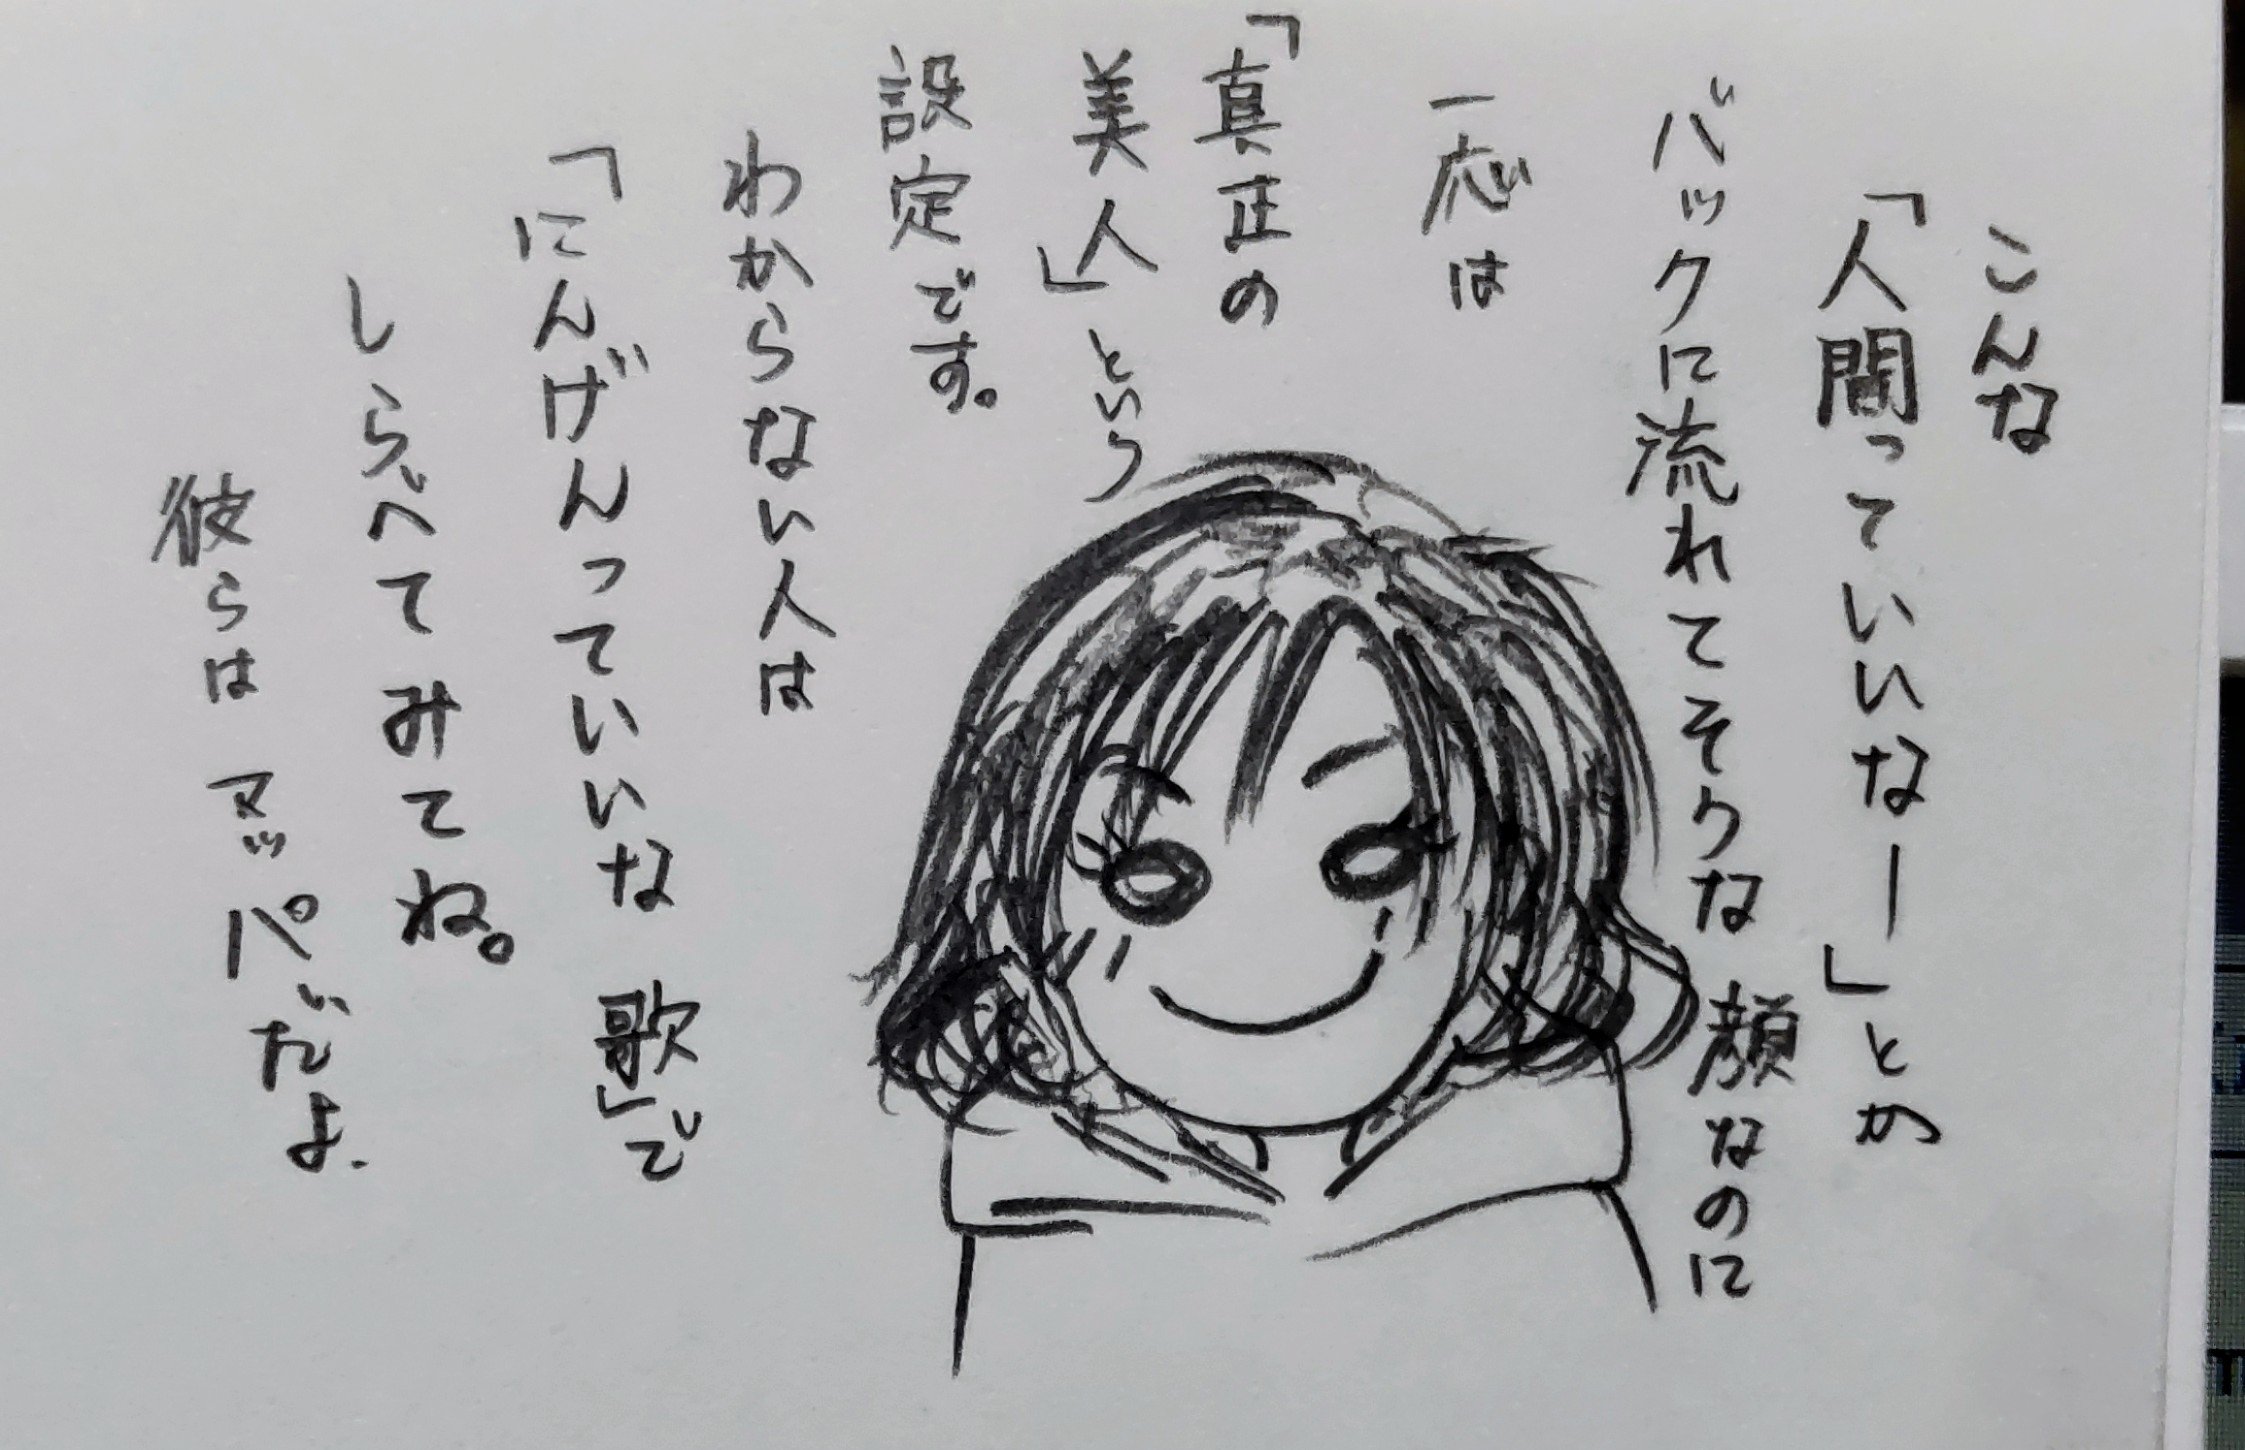 こんな
「人間っていいなー」とか
バックに流れてそうな顔なのに
一応は
「真正の
美人」という
設定です。
わからない人は
「にんげんっていいな 歌」で
しらべてみてね。
彼らはマッパだよ.